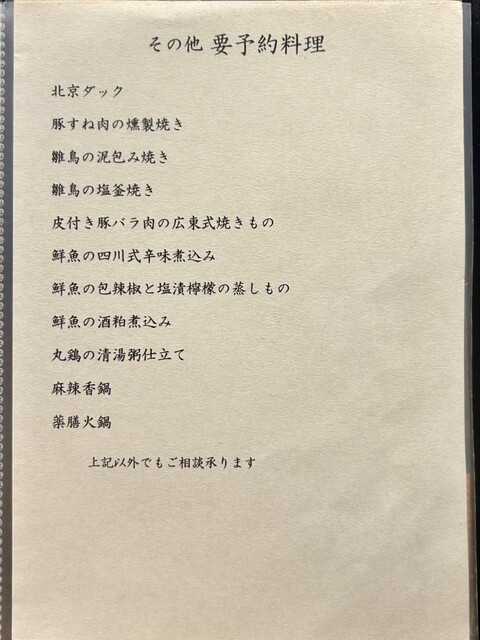 その他 要予約料理
北京ダック
豚すね肉の燻製焼き
雛鳥の泥包み焼き
雛鳥の塩釜焼き
皮付き豚バラ肉の広東式焼きもの
鮮魚の四川式辛味煮込み
鮮魚の包辣椒と塩漬檸檬の蒸しもの
鮮魚の酒粕煮込み
丸鶏の清湯粥仕立て
麻辣香鍋
薬膳火鍋
上記以外でもご相談承ります